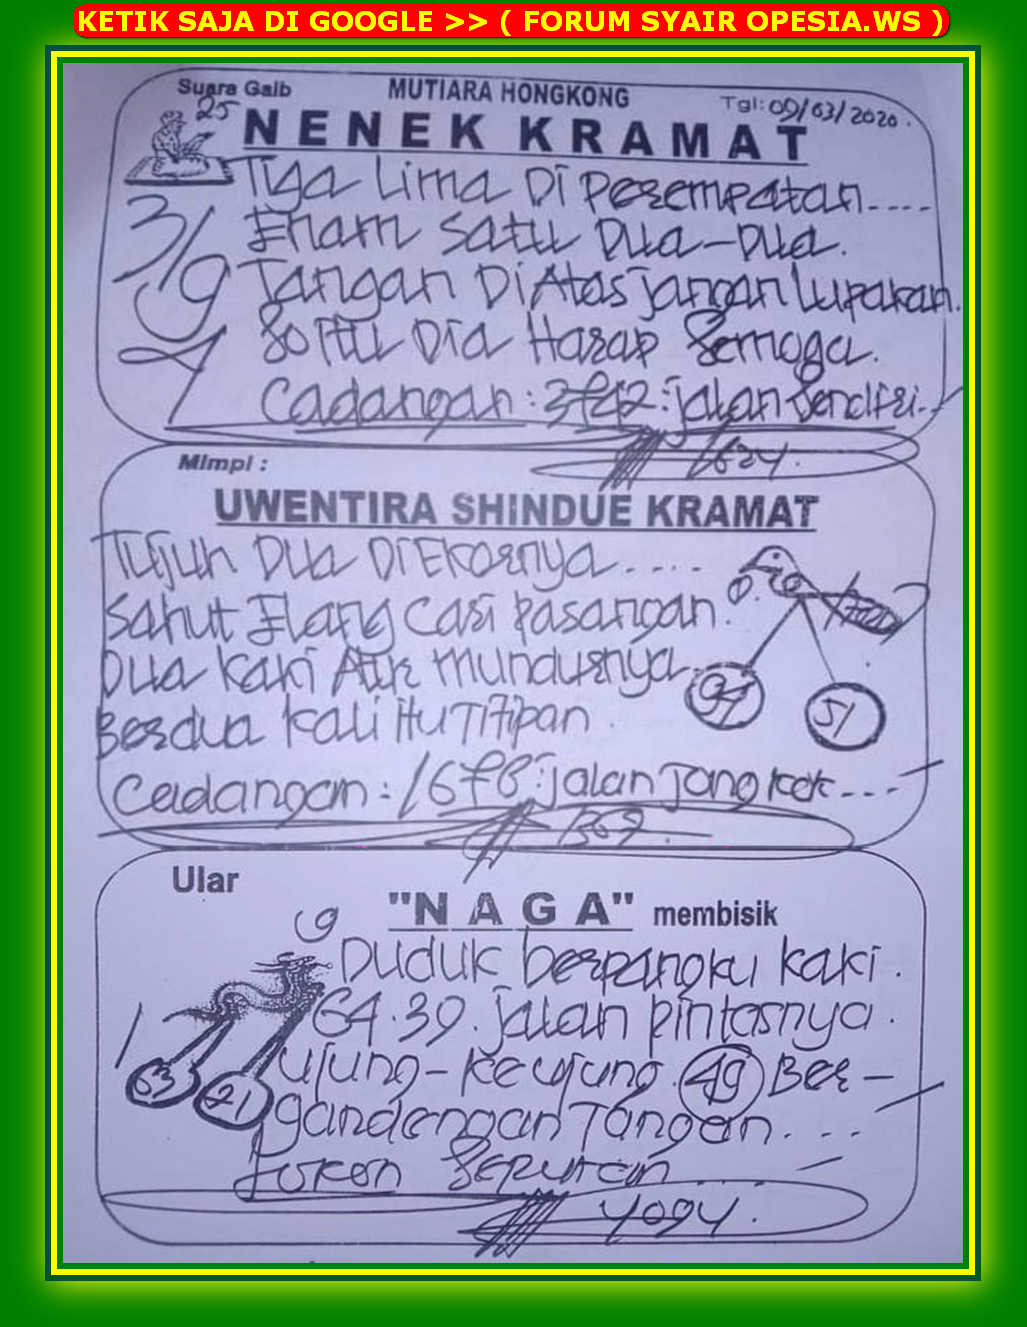 KETIK SAJA DI GOOGLE >> ( FORUM SYAIR OPESIA.WS )
Suara Gaib
MUTIARA HONGKONG
Tgl: 09/03/2020.
25
NENEK KRAMAT
Tiga Lima Di Perempatan....
3/9
Enam Satu Dua-Dua.
Tangan Di Atas jangan Lupakan.
Dia Harap Semoga.
Cadangan: jalan Sendiri..
1634.
Mimpi :
UWENTIRA SHINDUE KRAMAT
Tujuh Dua Di Ekornya....
Sahut Elang Cari Pasangan.
Dua Kaki Mundurnya
51
Berdua Kali Titipan.
Cadangan: 1678: jalan Jangkok...
Ular
"N A G A" membisik
9
Duduk berpangku kaki.
64.39. jalan pintasnya.
1
63
21
Ujung-Ke ujung. 49 Ber-
gandengan Tangan....
Seputan....
4094.